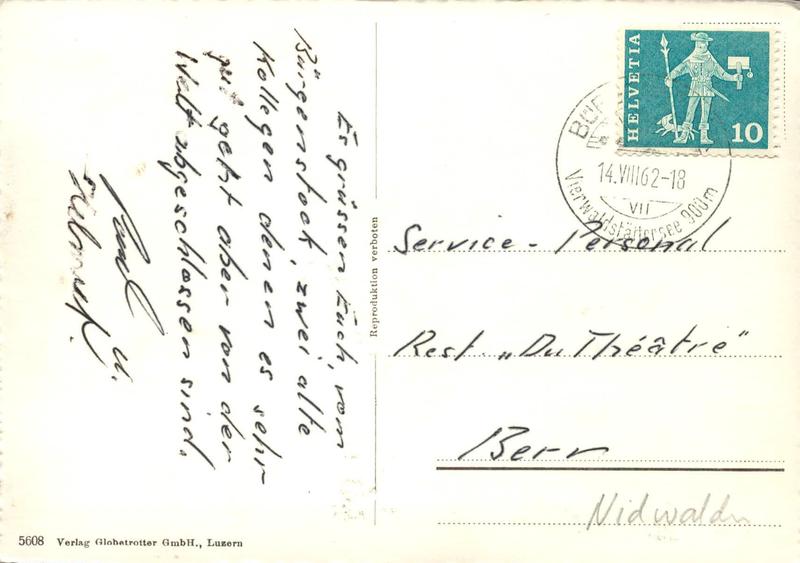 Es grüssen Euch, vom
Bürgenstock, zwei alte
Kollegen denen es sehr
gut geht aber von der
Welt abgeschlossen sind.
Paul u.
Helmut.
Reproduktion verboten
HELVETIA
10
14.VIII62-18
VII
Vierwaldstättersee 900m
Service - Personal
Rest. „Du Théâtre"
Bern
Nidwaldn
5608 Verlag Globetrotter GmbH., Luzern